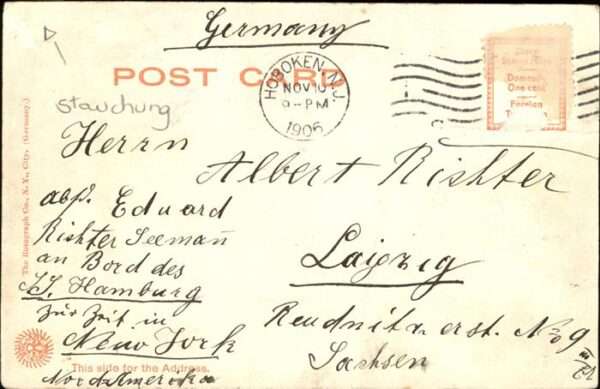 Germany
POST CARD
HOBOKEN, N.J.
NOV 10
9-PM
1906
Place
Stamp Here
Domestic
One cent
Foreign
stauchung
Herrn
Albert Richter
abs. Eduard
Richter Seemañ
an Bord des
SS. Hamburg
zur Zeit in
New York
Nord Amerika
Leipzig
Reudnitz
No 9
Sachsen
The Rotograph Co., N. Y. City. (Germany.)
This side for the Address.